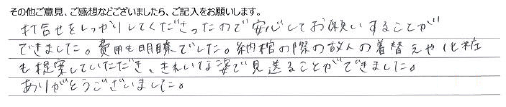 その他ご意見、ご感想などございましたら、ご記入をお願いします。
打合せをしっかりしてくださったので安心してお願いすることが
できました。費用も明瞭でした。納棺の際の故人の着替えや化粧
も提案していただき、きれいな姿で見送ることができました。
ありがとうございました。